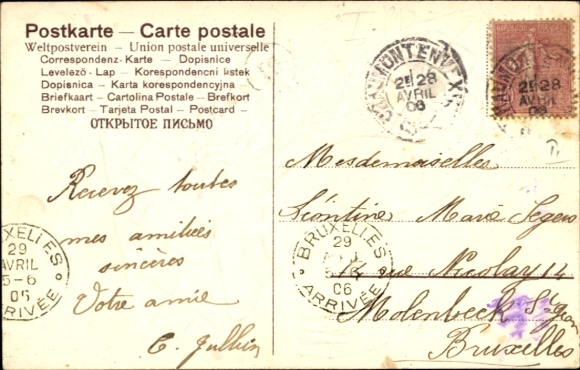 Postkarte — Carte postale
Weltpostverein — Union postale universelle
Correspondenz-Karte — Dopisnice
Levelező-Lap — Korespondencni listek
Dopisnica — Karta korespondencyjna
Briefkaart — Cartolina Postale — Brefkort
Brevkort — Tarjeta Postal — Postcard —
ОТКРЫТОЕ ПИСЬМО
CHAUMONT EN VEXIN
2E 28
AVRIL
06
CHAUMONT
2E 28
AVRIL
06
Recevez toutes
mes amitiés
sincères
Votre amie
Mesdemoiselles
Léontine Marie Segers
12 rue Nicolay 14
Molenbeek St Jean
Bruxelles
BRUXELLES
29
AVRIL
5-6
06
ARRIVÉE
BRUXELLES
29
06
ARRIVÉE